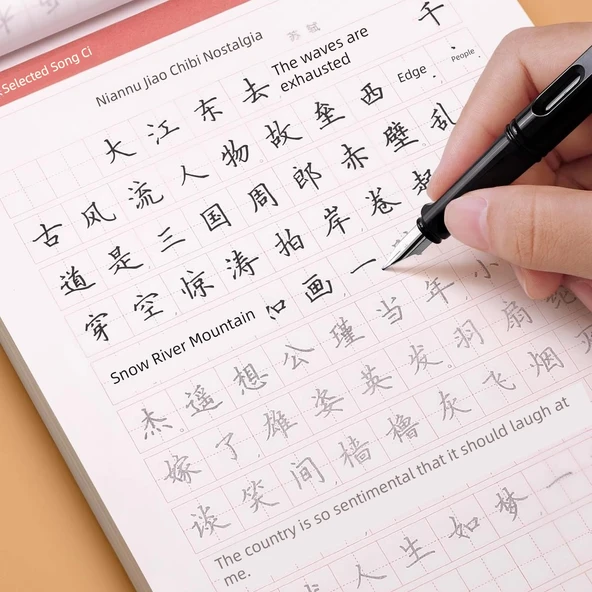 Selected Song Ci
Niannu Jiao Chibi Nostalgia 苏轼
大江东去 The waves are exhausted 千
古风流人物。故垒西 Edge, People
道是,三国周郎赤壁。乱
穿空,惊涛拍岸,卷
Snow River Mountain 如画,一
杰。遥想公瑾当年,小
嫁了,雄姿英发。羽扇纶
谈笑间,樯橹灰飞烟
The country is so sentimental that it should laugh at me.
人生如梦,一